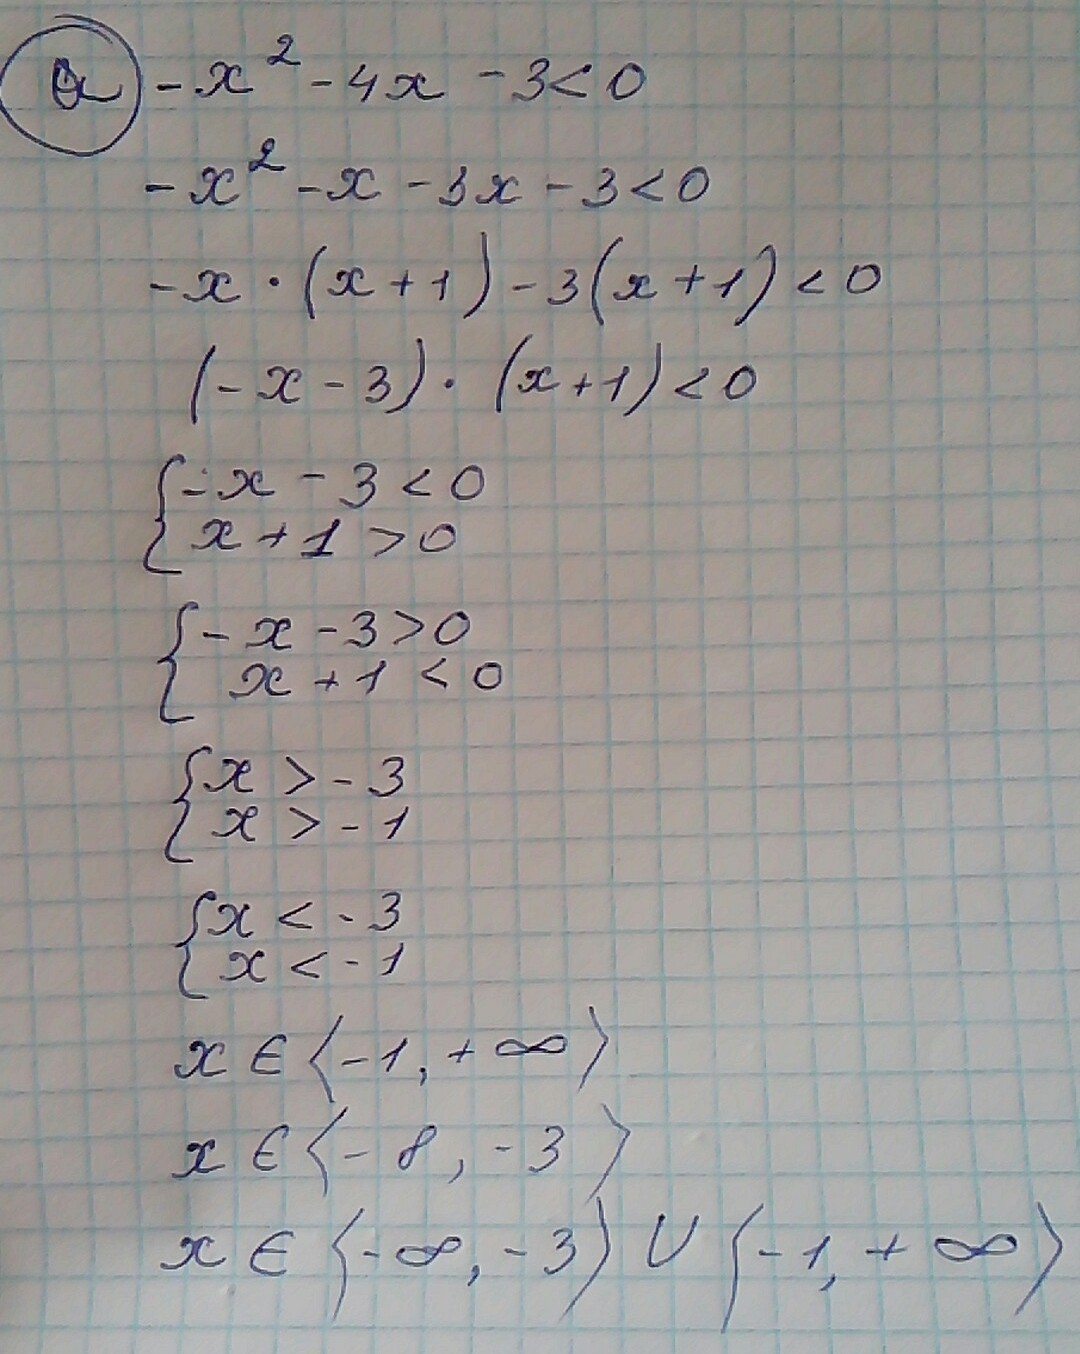 а) -x² - 4x - 3 < 0
-x² - x - 3x - 3 < 0
-x · (x + 1) - 3(x + 1) < 0
(-x - 3) · (x + 1) < 0
{ -x - 3 < 0
x + 1 > 0
{ -x - 3 > 0
x + 1 < 0
{ x > -3
x > -1
{ x < -3
x < -1
x ∈ ⟨-1, +∞⟩
x ∈ ⟨-8, -3⟩
x ∈ ⟨-∞, -3) ∪ ⟨-1, +∞⟩